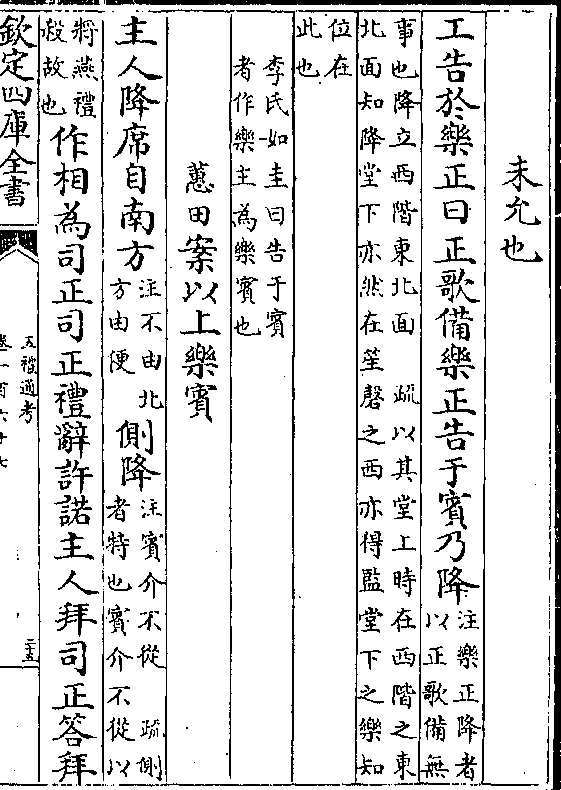 未允也
工告於樂正曰正歌備樂正告于賓乃降注樂正降者
以正歌備無
事也降立西階東北面 疏以其堂上時在西階之東
北面知降堂下亦然在笙磬之西亦得監堂下之樂知
位在
此也
李氏如圭曰告于賓
者作樂主為樂賓也
蕙田案以上樂賓
主人降席自南方注不由北
方由便側降注賓介不從 疏側
者特也賓介不從以
將燕禮
殺故也作相為司正司正禮辭許諾主人拜司正答拜
欽定四庫全書
五禮通考
卷一百六十七